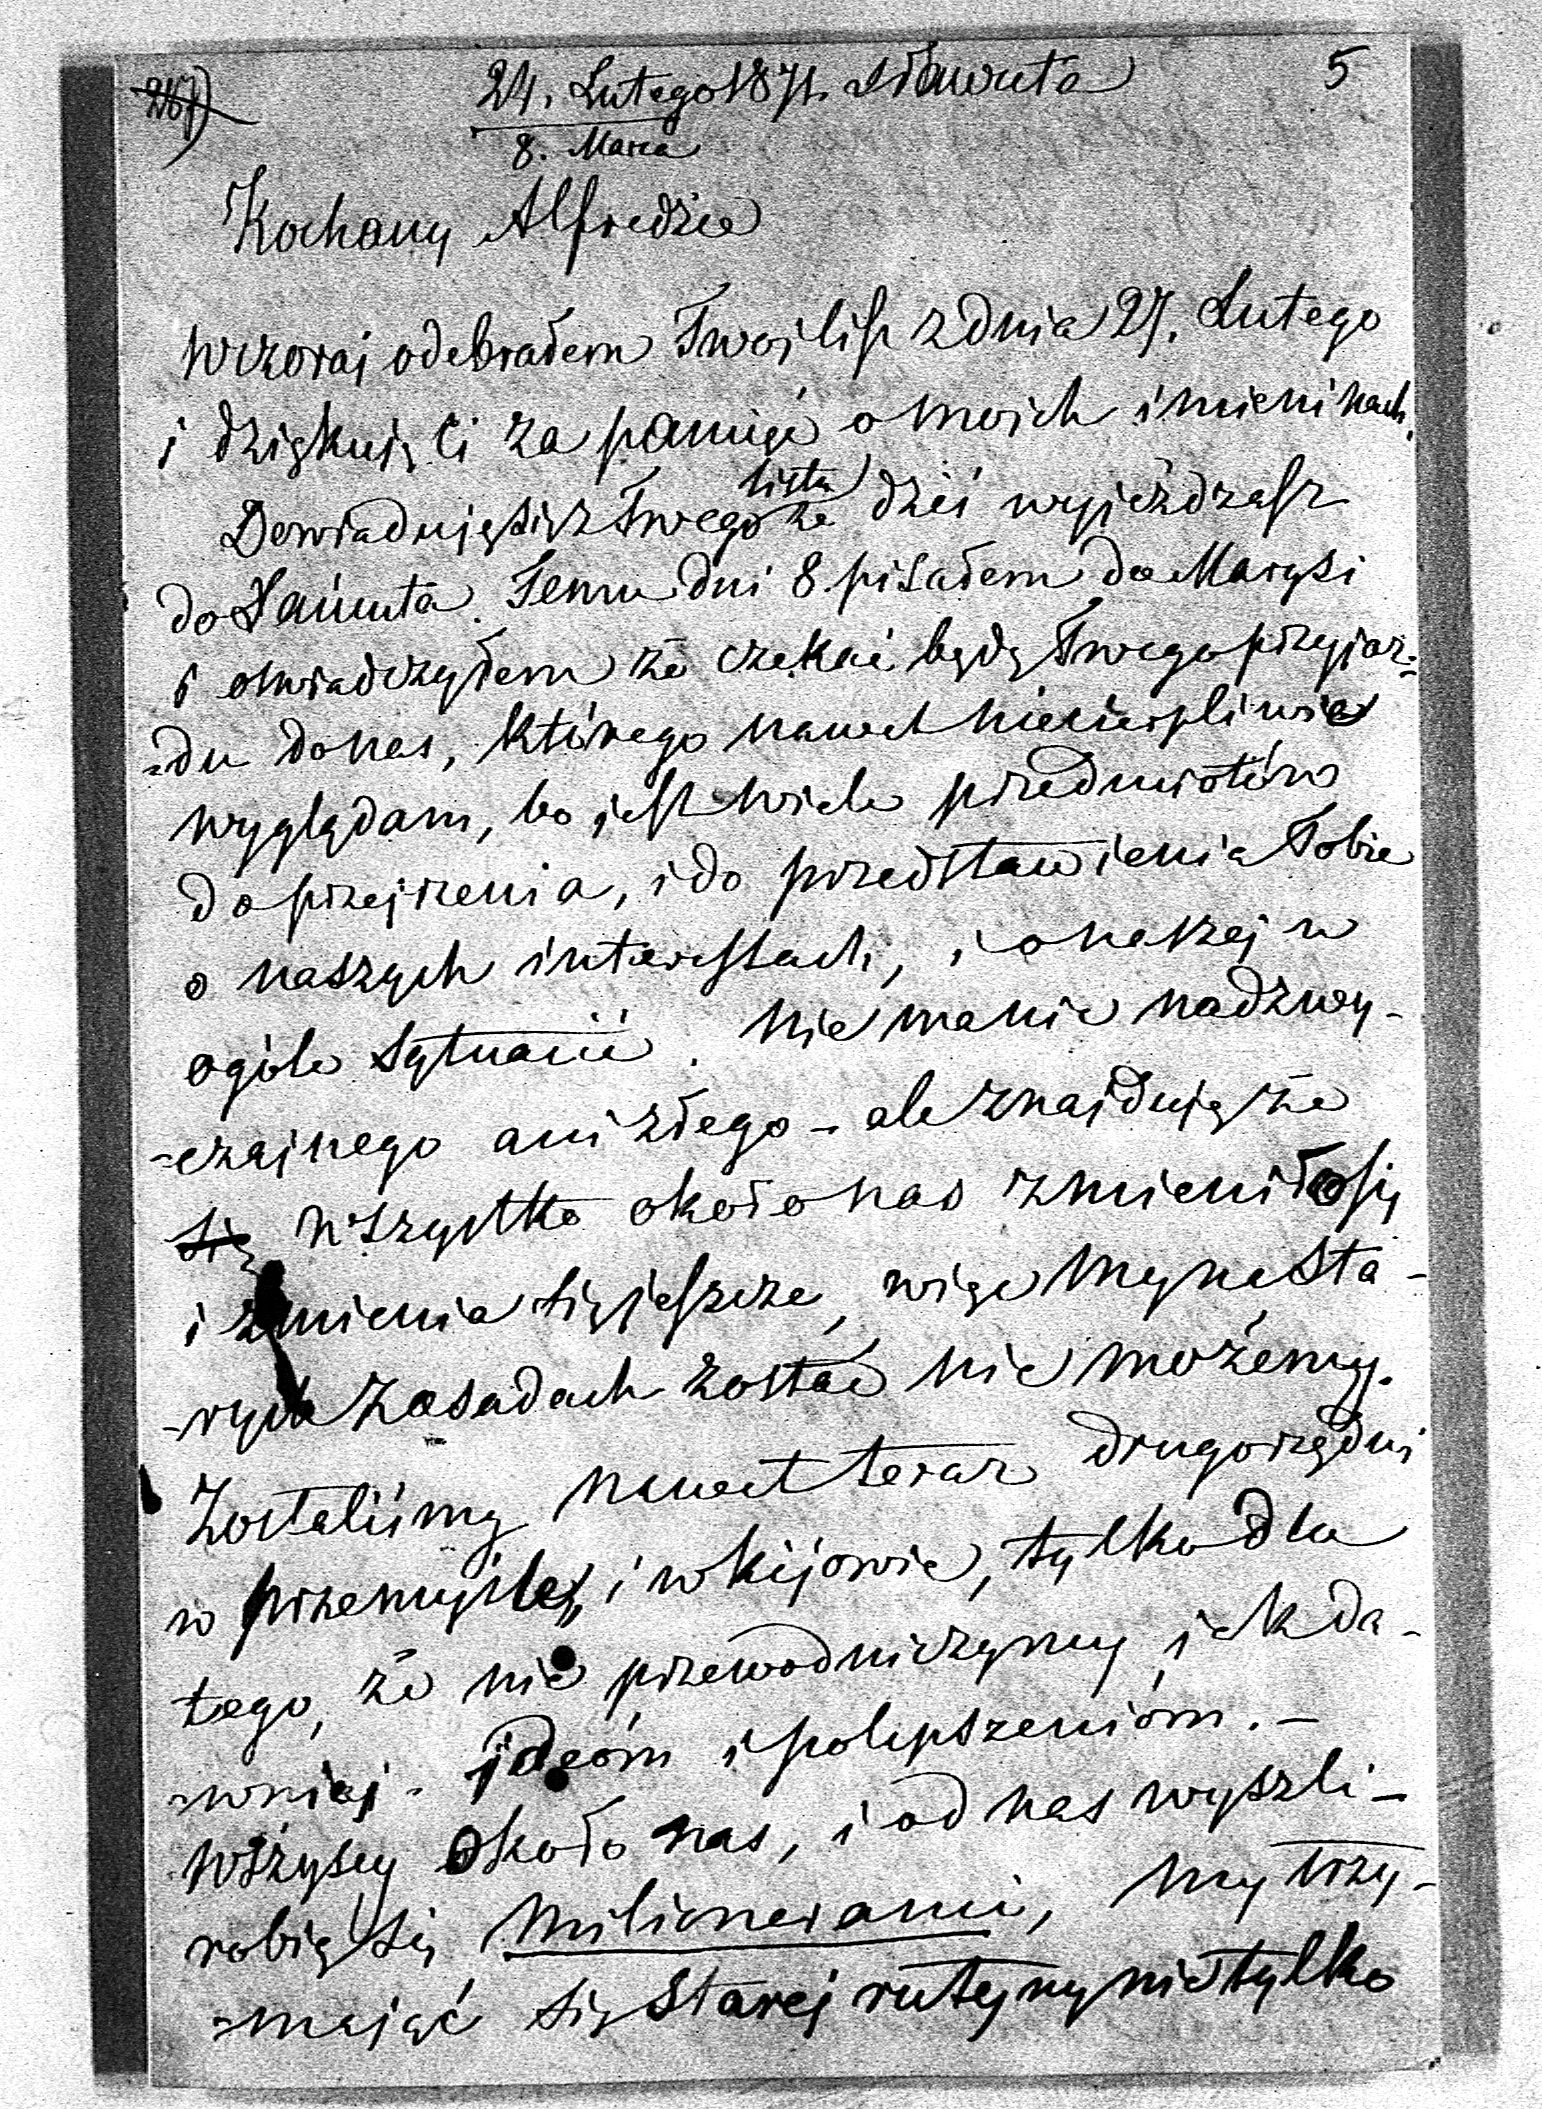 24. Lutego 1871. Sławuta 5
8. Marca
Kochany Alfredzie
Wczoraj odebrałem Twój list z dnia 27. Lutego
i dziękuję Ci za pamięć o moich imieninach.
Dowiaduję się z Twego listu że dziś wyjeżdzasz
do Łańcuta. Temu dni 8. pisałem do Marysi
i oświadczyłem że czekać będę Twego przyjaz=
=du do nas, którego nawet niecierpliwie
wyglądam, bo jest wiele przedmiotów
do przejrzenia, i do przedstawienia Tobie
o naszych interessach, i o naszej w
ogóle sytuacii. Nie ma nic nadzwy-
-czajnego ani złego - ale znajduję że
się wszystko około nas zmieniło się
i zmienia się jeszcze, więc my na sta-
-rych zasadach zostać nie możemy.
Zostaliśmy nawet teraz drugorzędni
w przemyśle, i w Kijowie, tylko dla
tego, że nie przewodniczymy jak da-
-wniej - ideóm i polepszenióm. -
Wszyscy około nas, i od nas wyszli -
robią się milionerami, my trzy-
=mając się starej rutyny nie tylko